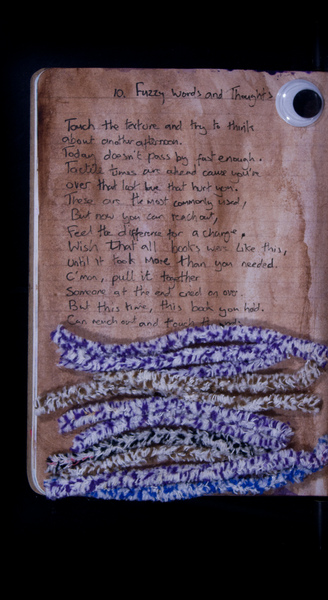 10. Fuzzy Words and Thoughts
Touch the texture and try to think
about another afternoon.
Today doesn't pass by fast enough.
Tactile times are ahead cause you're
over that last that hurt
These are the most commonly used,
But now you can reach out,
Feel the difference for a change,
Wish that all books was like this,
Until it took More than you needed.
C'mon, pull it together
Someone at the end cred on over.
But this time, this book you hold.
Can reach out and touch